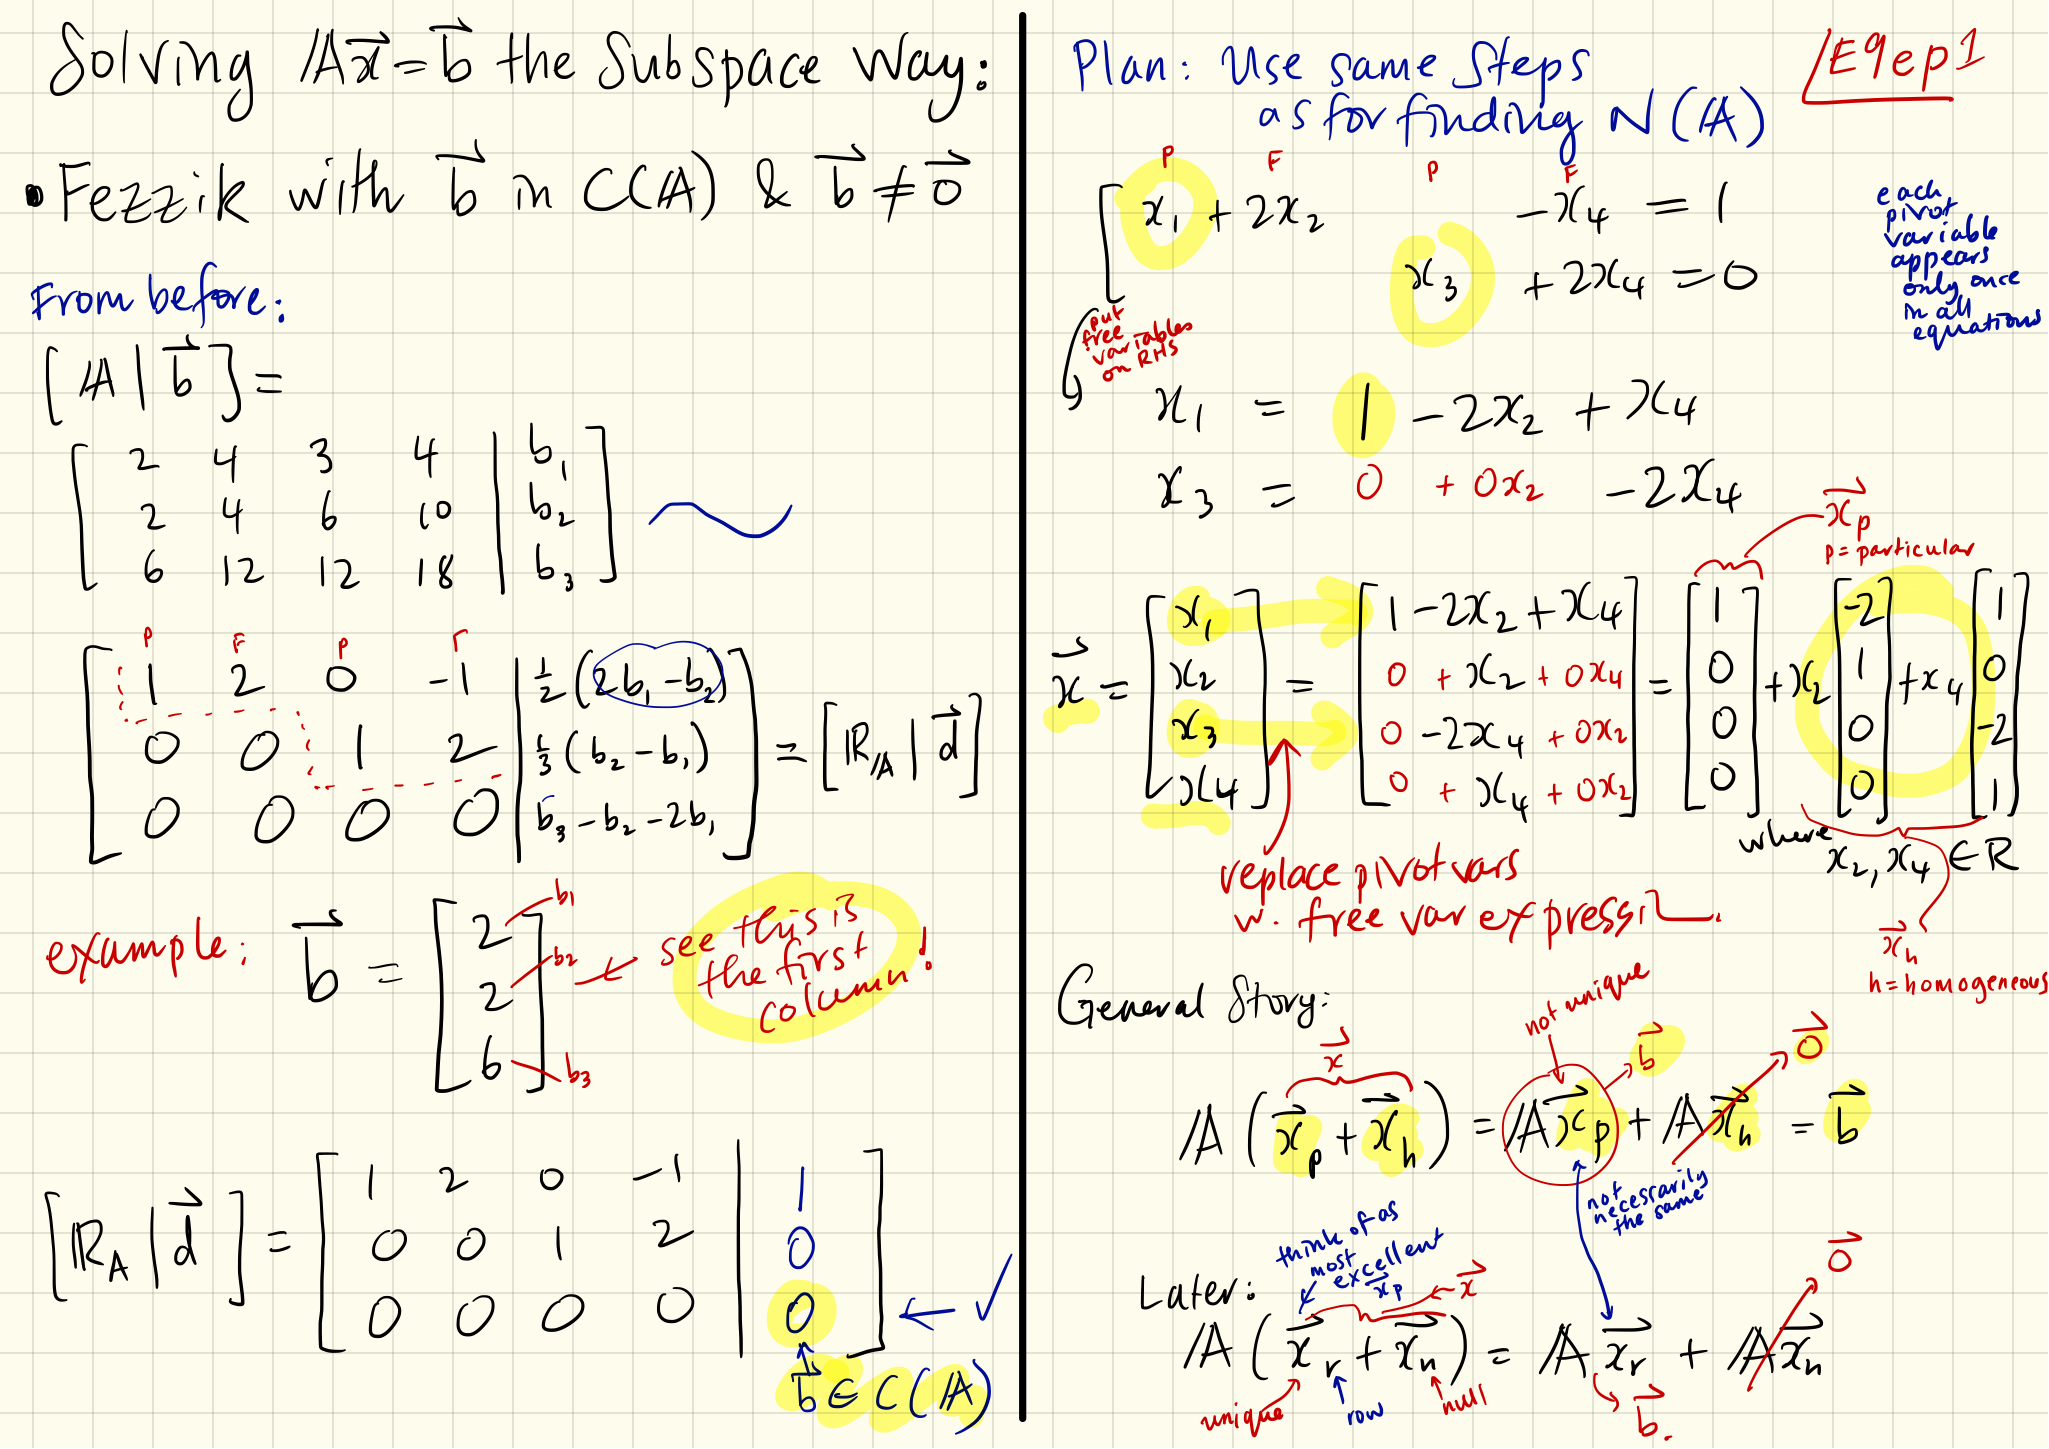 Solving 𝔸x⃗ = b⃗ the Subspace Way:
• Fezzik with b⃗ in C(𝔸) & b⃗ ≠ 0⃗
From before:
[𝔸 | b⃗] =
[ 2 4 3 4 | b₁ ]
[ 2 4 6 10 | b₂ ] ~
[ 6 12 12 18 | b₃ ]
P F P F
[ 1 2 0 -1 | ½(2b₁ - b₂) ]
[ 0 0 1 2 | ⅓(b₂ - b₁) ] = [ℝ_𝔸 | d⃗]
[ 0 0 0 0 | b₃ - b₂ - 2b₁ ]
example: b⃗ = [ 2 2 6 ]
b₁
b₂
b₃
see this is
the first
column!
[ℝ_A | d⃗] =
[ 1 2 0 -1 | 1 ]
[ 0 0 1 2 | 0 ]
[ 0 0 0 0 | 0 ] ← ✓
b⃗ ∈ C(𝔸)
Plan: Use same steps
as for finding N(𝔸)
E9ep1
P F P F
x₁ + 2x₂ - x₄ = 1
x₃ + 2x₄ = 0
each
pivot
variable
appears
only once
in all
equations
put
free
variables
on RHS
x₁ = 1 - 2x₂ + x₄
x₃ = 0 + 0x₂ - 2x₄
x⃗p
p = particular
x⃗ = [ x₁ x₂ x₃ x₄ ] = [ 1 - 2x₂ + x₄
0 + x₂ + 0x₄
0 - 2x₄ + 0x₂
0 + x₄ + 0x₂ ] = [ 1 0 0 0 ] + x₂ [ -2 1 0 0 ] + x₄ [ 1 0 -2 1 ]
where
x₂, x₄ ∈ R
replace pivot vars
w. free var express
x⃗h
h = homogeneous
General Story:
not unique
x⃗
b⃗
0⃗
𝔸(x⃗p + x⃗h) = 𝔸x⃗p + 𝔸x⃗h = b⃗
not
necessarily
the same
think of as
most
excellent
x⃗p
← x⃗
0⃗
Later:
𝔸(x⃗r + x⃗n) = 𝔸x⃗r + 𝔸x⃗n
unique
row
null
b⃗.